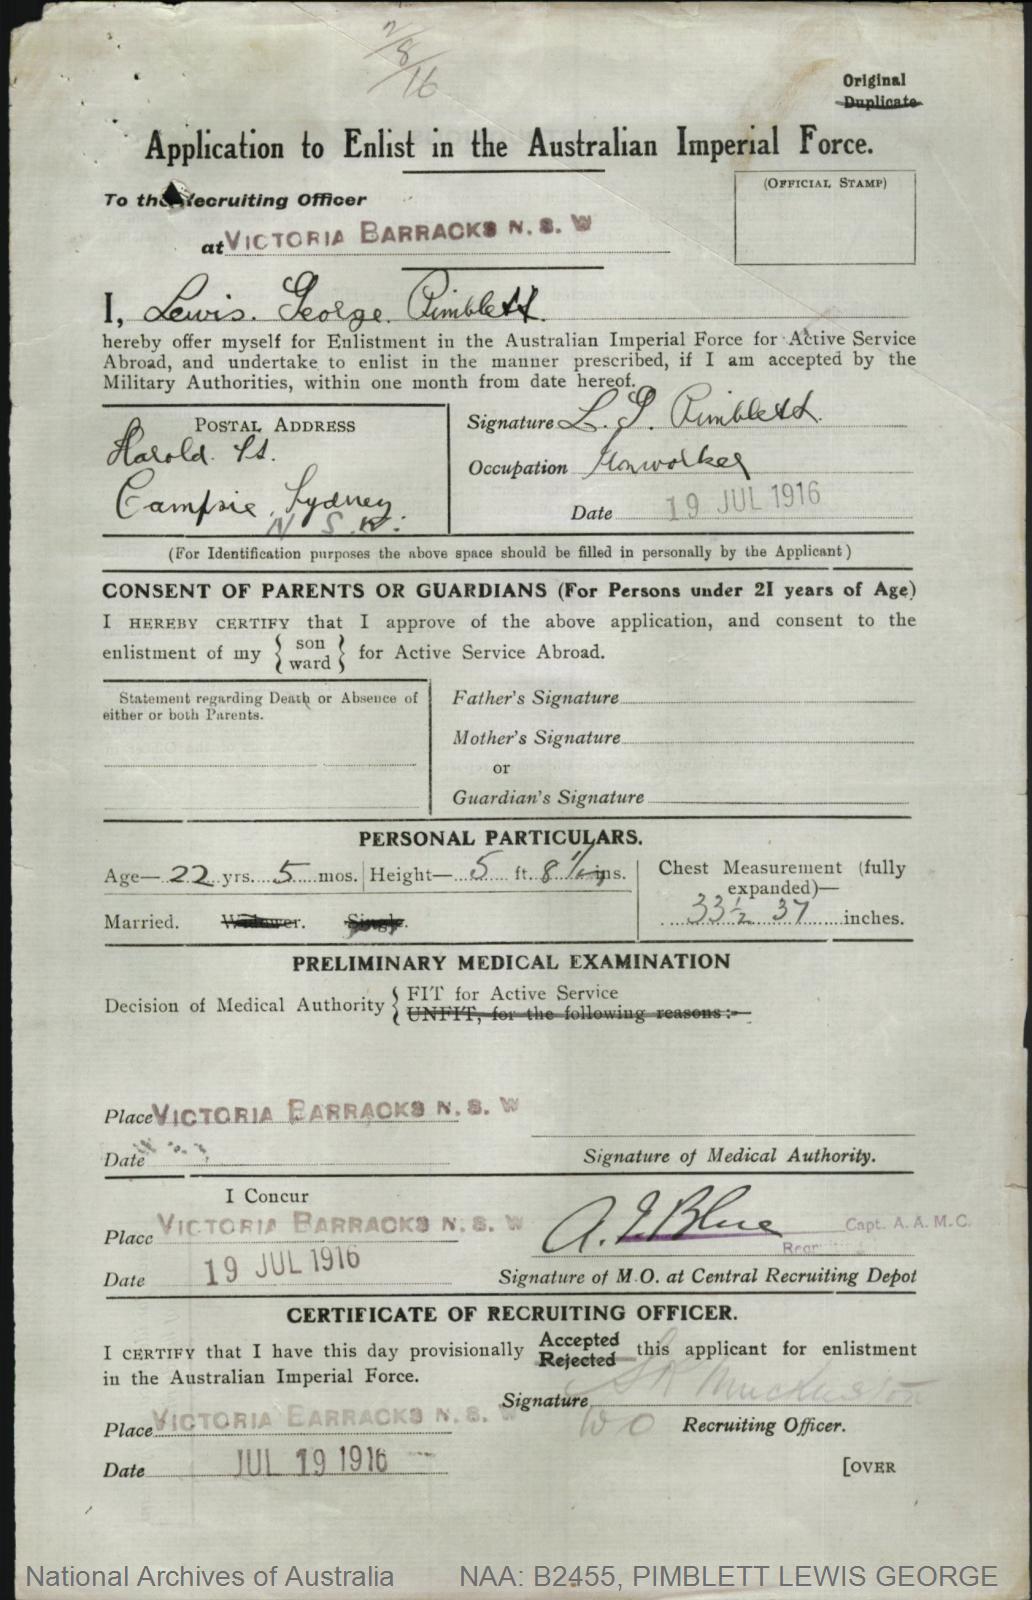 2/8/16
Original
Duplicate
Application to Enlist in the Australian Imperial Force.
(OFFICIAL STAMP)
To the Recruiting Officer
at VICTORIA BARRACKS N. S. W
I, Lewis. George. Pimblett.
hereby offer myself for Enlistment in the Australian Imperial Force for Active Service
Abroad, and undertake to enlist in the manner prescribed, if I am accepted by the
Military Authorities, within one month from date hereof.
POSTAL ADDRESS
Harold. St.
Campsie, Sydney
N S. W.
Signature L. G. Pimblett.
Occupation Ironworker
Date 19 JUL 1916
(For Identification purposes the above space should be filled in personally by the Applicant)
CONSENT OF PARENTS OR GUARDIANS (For Persons under 21 years of Age)
I HEREBY CERTIFY that I approve of the above application, and consent to the
enlistment of my { son ward } for Active Service Abroad.
Statement regarding Death or Absence of
either or both Parents.
Father's Signature
Mother's Signature
or
Guardian's Signature
PERSONAL PARTICULARS.
Age— 22 yrs. 5 mos. Height— 5 ft. 8 1/4 ins.
Chest Measurement (fully
expanded)—
33½ 37 inches.
Married. Widower. Single.
PRELIMINARY MEDICAL EXAMINATION
Decision of Medical Authority { FIT for Active Service
UNFIT, for the following reasons:-
Place VICTORIA BARRACKS N. S. W
Date
Signature of Medical Authority.
I Concur
Place VICTORIA BARRACKS N. S. W
A. J. Blue Capt. A. A. M. C.
Date 19 JUL 1916
Signature of M.O. at Central Recruiting Depot
CERTIFICATE OF RECRUITING OFFICER.
I CERTIFY that I have this day provisionally Accepted Rejected this applicant for enlistment
in the Australian Imperial Force.
Signature
Place VICTORIA BARRACKS N. S. W
W O Recruiting Officer.
Date JUL 19 1916
[OVER
National Archives of Australia NAA: B2455, PIMBLETT LEWIS GEORGE